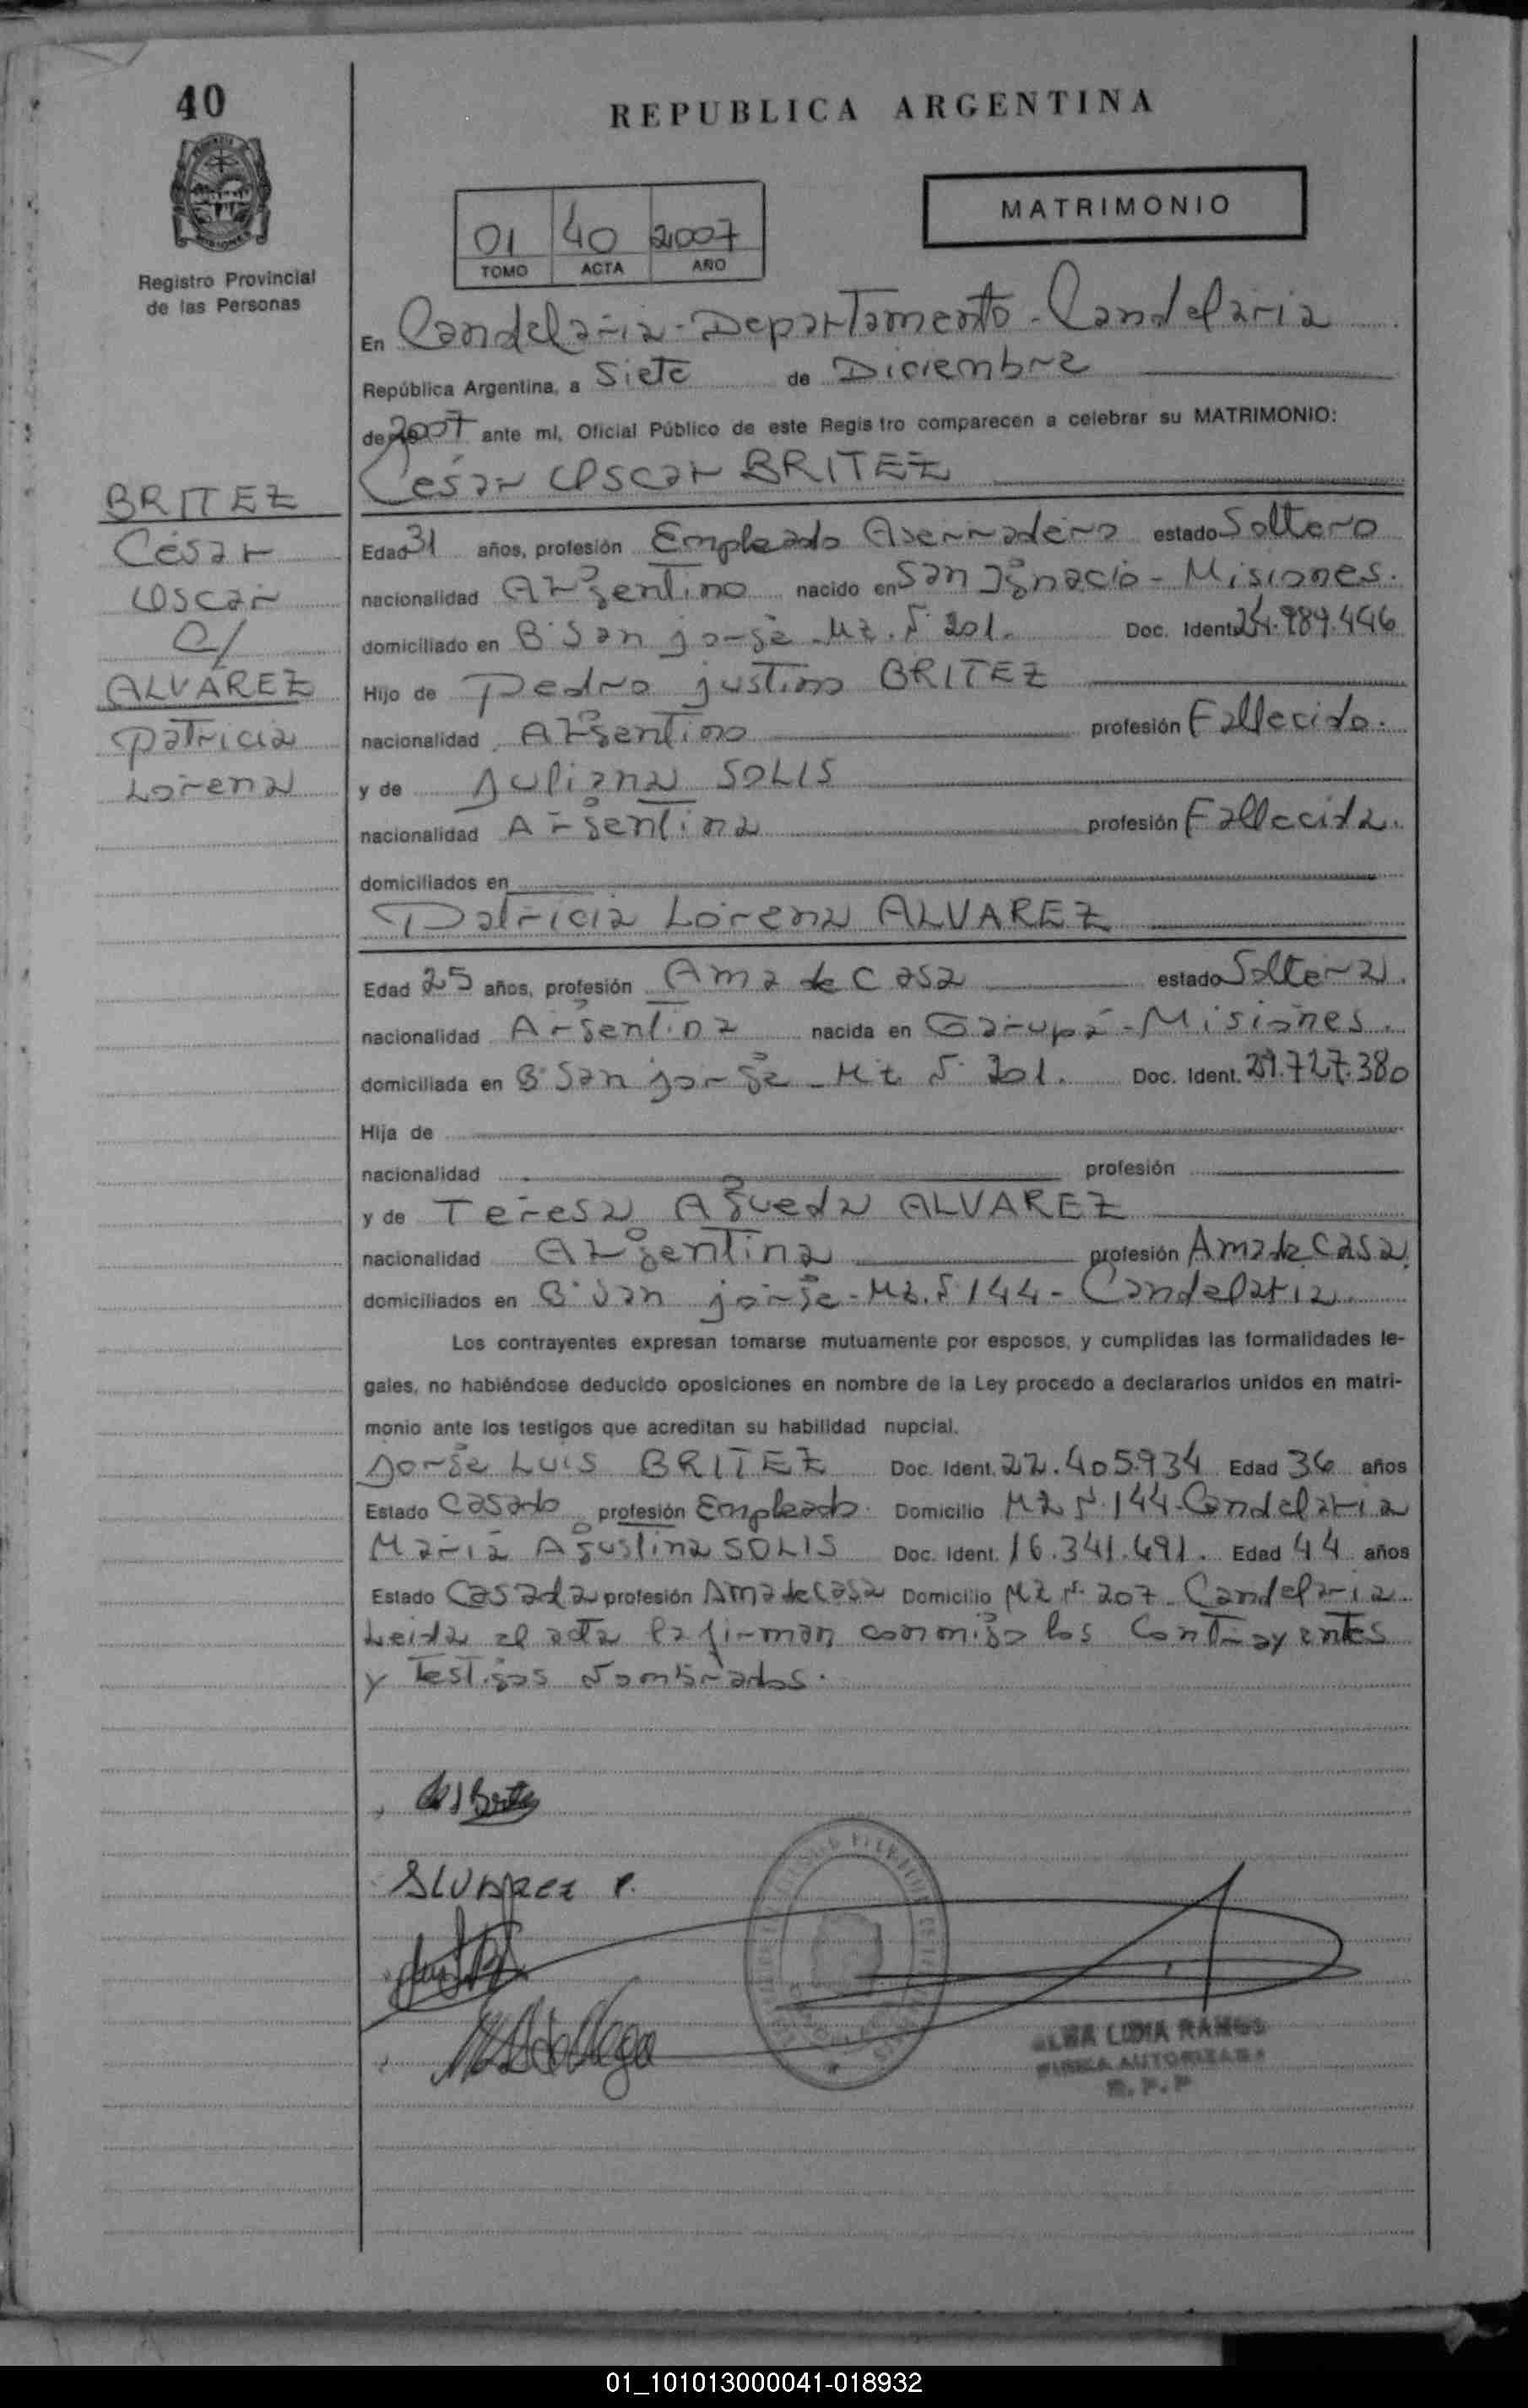 40
REPUBLICA ARGENTINA
MATRIMONIO
01 40 2007
TOMO ACTA AÑO
Registro Provincial
de las Personas
En Candelaria - Departamento - Candelaria
República Argentina, a Siete de Diciembre
de 2007 ante mi, Oficial Público de este Regis tro comparecen a celebrar su MATRIMONIO:
César Oscar BRITEZ
BRITEZ
César
Oscar
C/
ALVAREZ
Patricia
Lorena
Edad 31 años, profesión Empleado Aserradero estado Soltero
nacionalidad Argentino nacido en San Ignacio - Misiones.
domiciliado en B° San jorge - Mz. N° 201. Doc. Ident. 24.989.446
Hijo de Pedro justino BRITEZ
nacionalidad Argentino profesión Fallecido.
y de Juliana SOLIS
nacionalidad Argentina profesión Fallecida.
domiciliados en
Patricia Lorena ALVAREZ
Edad 25 años, profesión Ama de Casa estado Soltera.
nacionalidad Argentina nacida en Garupá - Misiones.
domiciliada en B° San jorge - Mz N° 201. Doc. Ident. 29.727.380
Hija de
nacionalidad profesión
y de Teresa Agueda ALVAREZ
nacionalidad Argentina profesión Ama de Casa.
domiciliados en B° San jorge - Mz. N° 144 - Candelaria.
Los contrayentes expresan tomarse mutuamente por esposos, y cumplidas las formalidades le-
gales, no habiéndose deducido oposiciones en nombre de la Ley procedo a declararlos unidos en matri-
monio ante los testigos que acreditan su habilidad nupcial.
Jorge Luis BRITEZ Doc. Ident. 22.405.934 Edad 36 años
Estado Casado profesión Empleado. Domicilio Mz N° 144 - Candelaria
Maria Agustina SOLIS Doc. Ident. 16.341.491. Edad 44 años
Estado Casada profesión Ama de Casa Domicilio Mz N° 207 - Candelaria.
Leida el acta la firman conmigo los Contrayentes
y testigos Nombrados.
Alvarez P.
ALBA LIDIA RAMOS
FIRMA AUTORIZADA
R. P. P
01_101013000041-018932